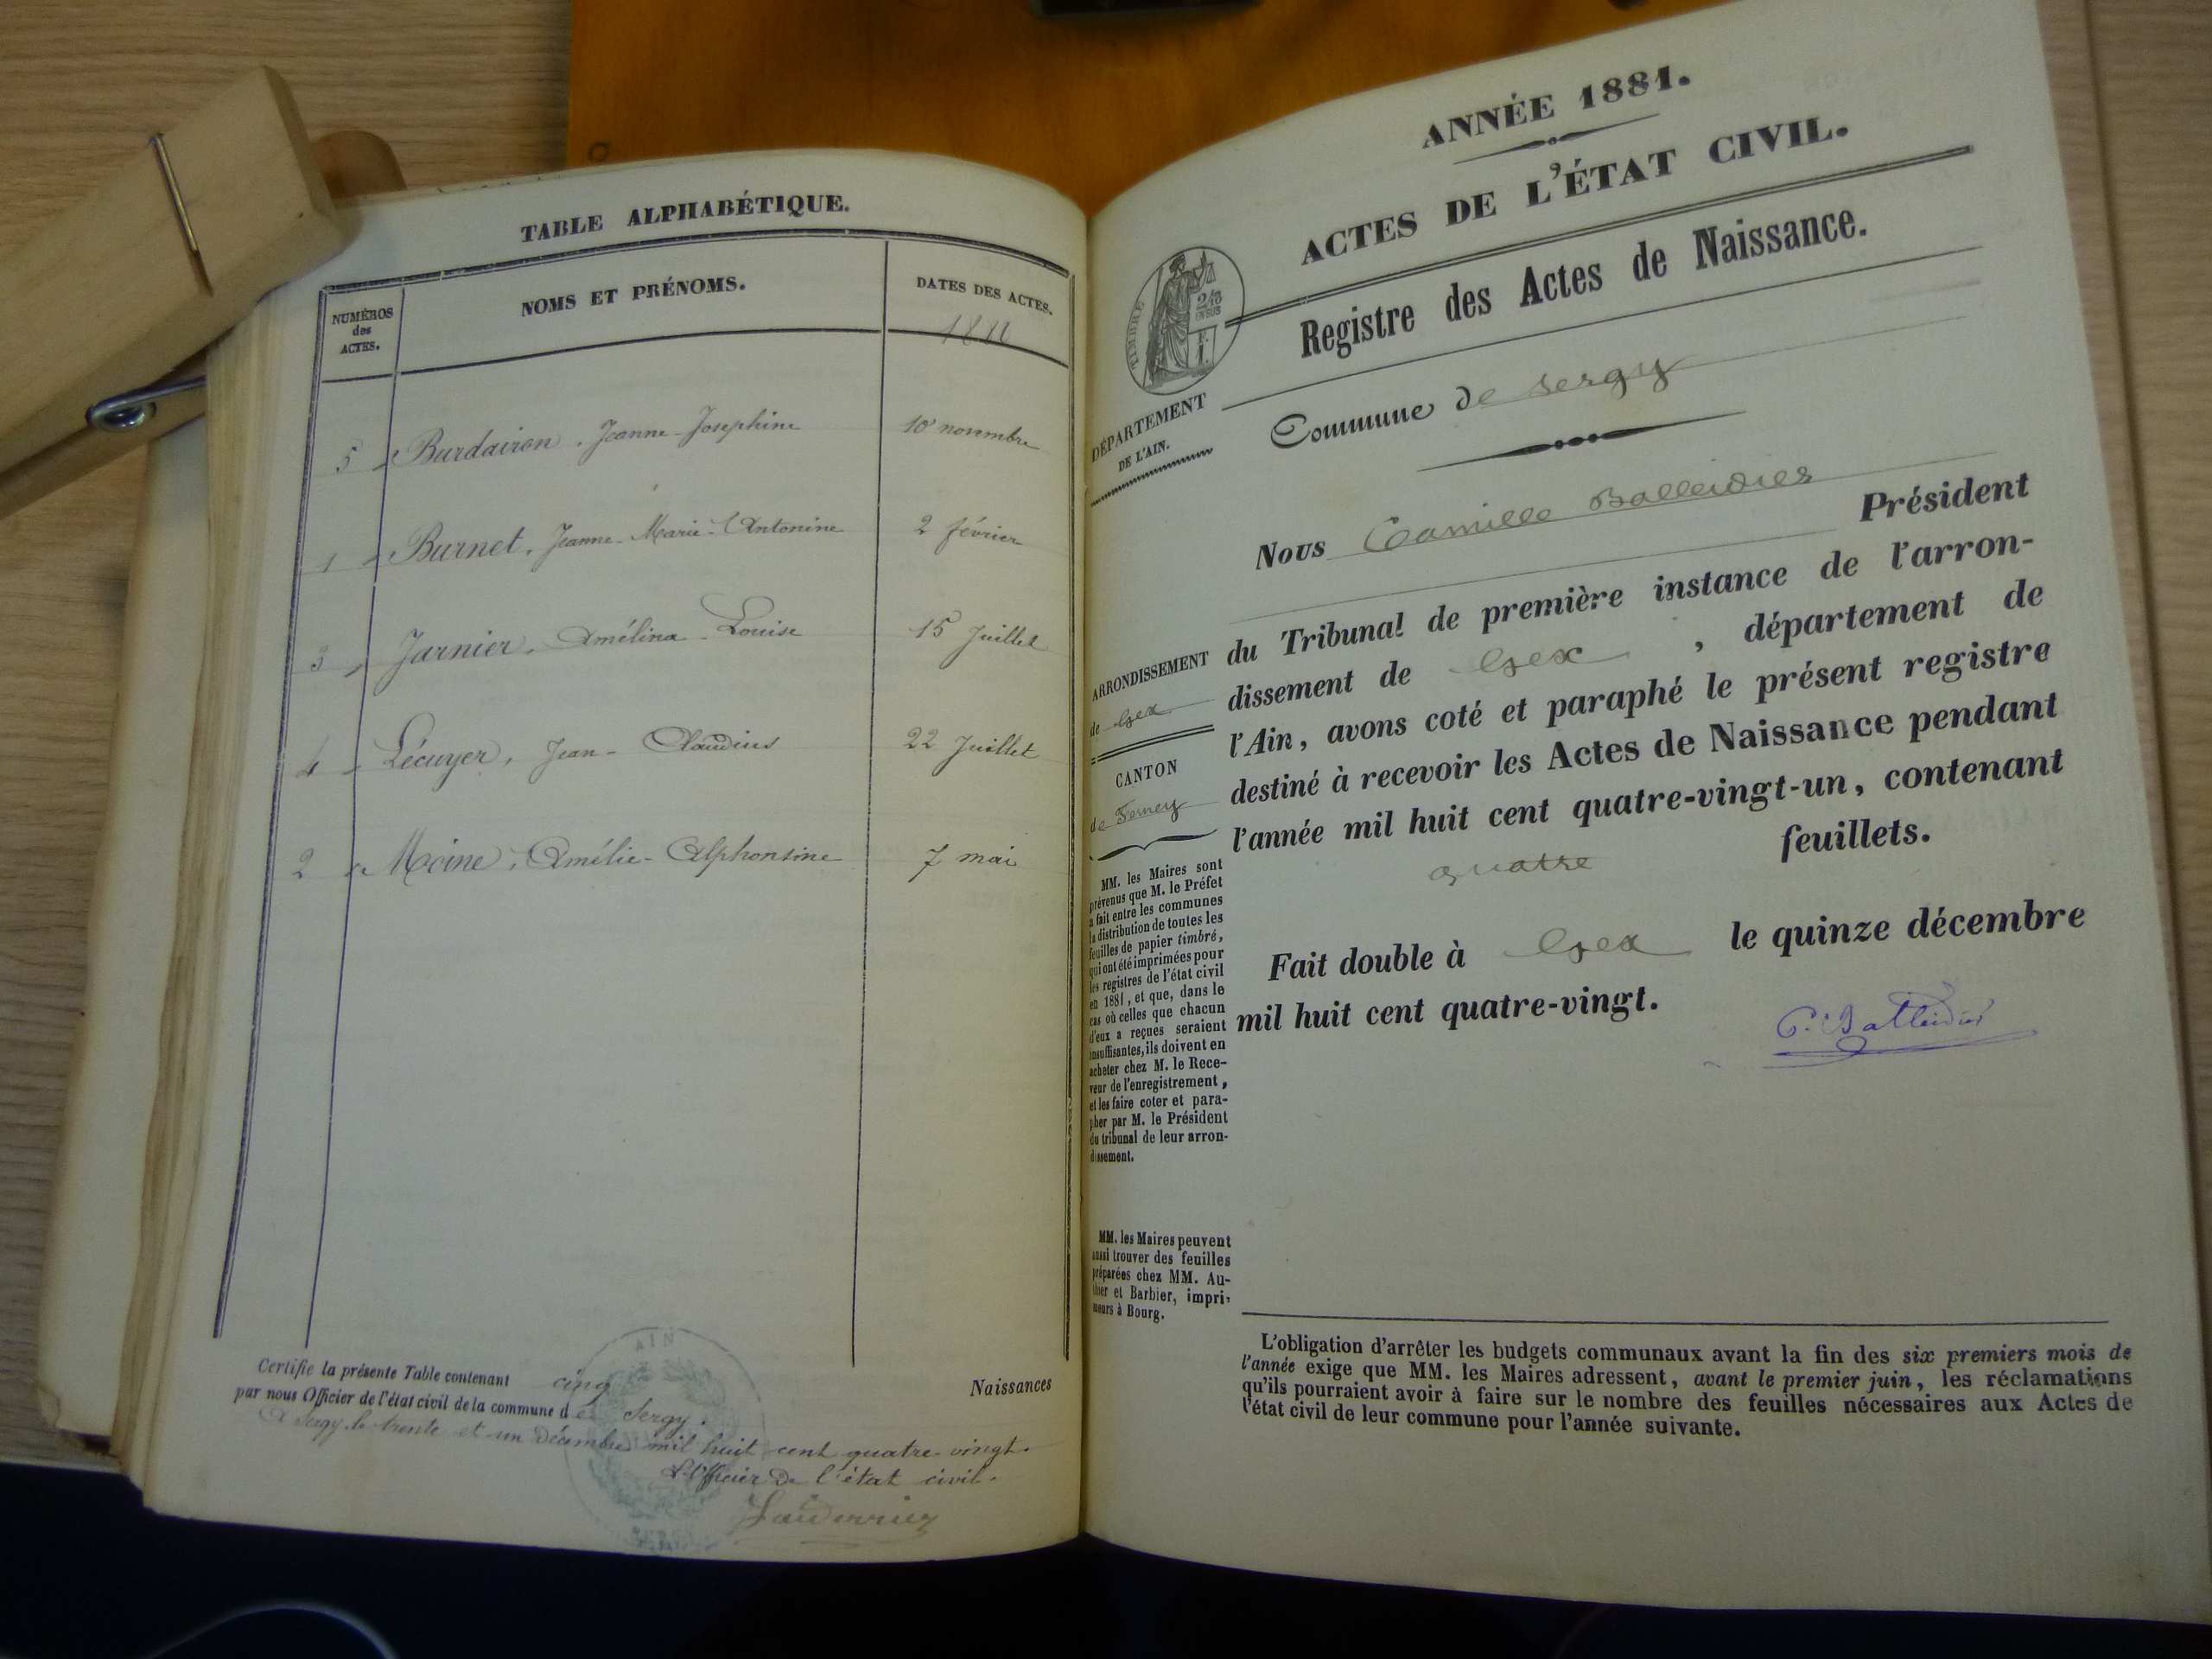 TABLE ALPHABÉTIQUE.
NUMÉROS des ACTES.
NOMS ET PRÉNOMS.
DATES DES ACTES.
5 Burdairon, Jeanne-Joséphine 10 novembre
1 Burnet, Jeanne-Marie-Antonine 2 février
3 Jarnier, Amélina-Louise 15 Juillet
4 Lécuyer, Jean-Claudius 22 Juillet
2 Moine, Amélie-Alphonsine 7 mai
Certifie la présente Table contenant cinq Naissances
par nous Officier de l'état civil de la commune de Sergy.
A Sergy, le trente et un Décembre mil huit cent quatre vingt.
L'Officier de l'état civil.
AIN
ANNÉE 1881.
ACTES DE L'ÉTAT CIVIL.
Registre des Actes de Naissance.
TIMBRE
DÉPARTEMENT
DE L'AIN.
Commune de Sergy
Nous Camille Balleidier Président
du Tribunal de première instance de l'arron-
dissement de Gex, département de
l'Ain, avons coté et paraphé le présent registre
destiné à recevoir les Actes de Naissance pendant
l'année mil huit cent quatre-vingt-un, contenant
quatre feuillets.
Fait double à Gex le quinze décembre
mil huit cent quatre-vingt.
C. Balleidier
ARRONDISSEMENT
de Gex
CANTON
de Ferney
MM. les Maires sont
prévenus que M. le Préfet
a fait entre les communes
la distribution de toutes les
feuilles de papier timbré,
qui ont été imprimées pour
les registres de l'état civil
en 1881, et que, dans le
cas où celles que chacun
d'eux a reçues seraient
insuffisantes, ils doivent en
acheter chez M. le Rece-
veur de l'enregistrement,
et les faire coter et para-
pher par M. le Président
du tribunal de leur arron-
dissement.
MM. les Maires peuvent
aussi trouver des feuilles
préparées chez MM. Au-
thier et Barbier, impri-
meurs à Bourg.
L'obligation d'arrêter les budgets communaux avant la fin des six premiers mois de
l'année exige que MM. les Maires adressent, avant le premier juin, les réclamations
qu'ils pourraient avoir à faire sur le nombre des feuilles nécessaires aux Actes de
l'état civil de leur commune pour l'année suivante.